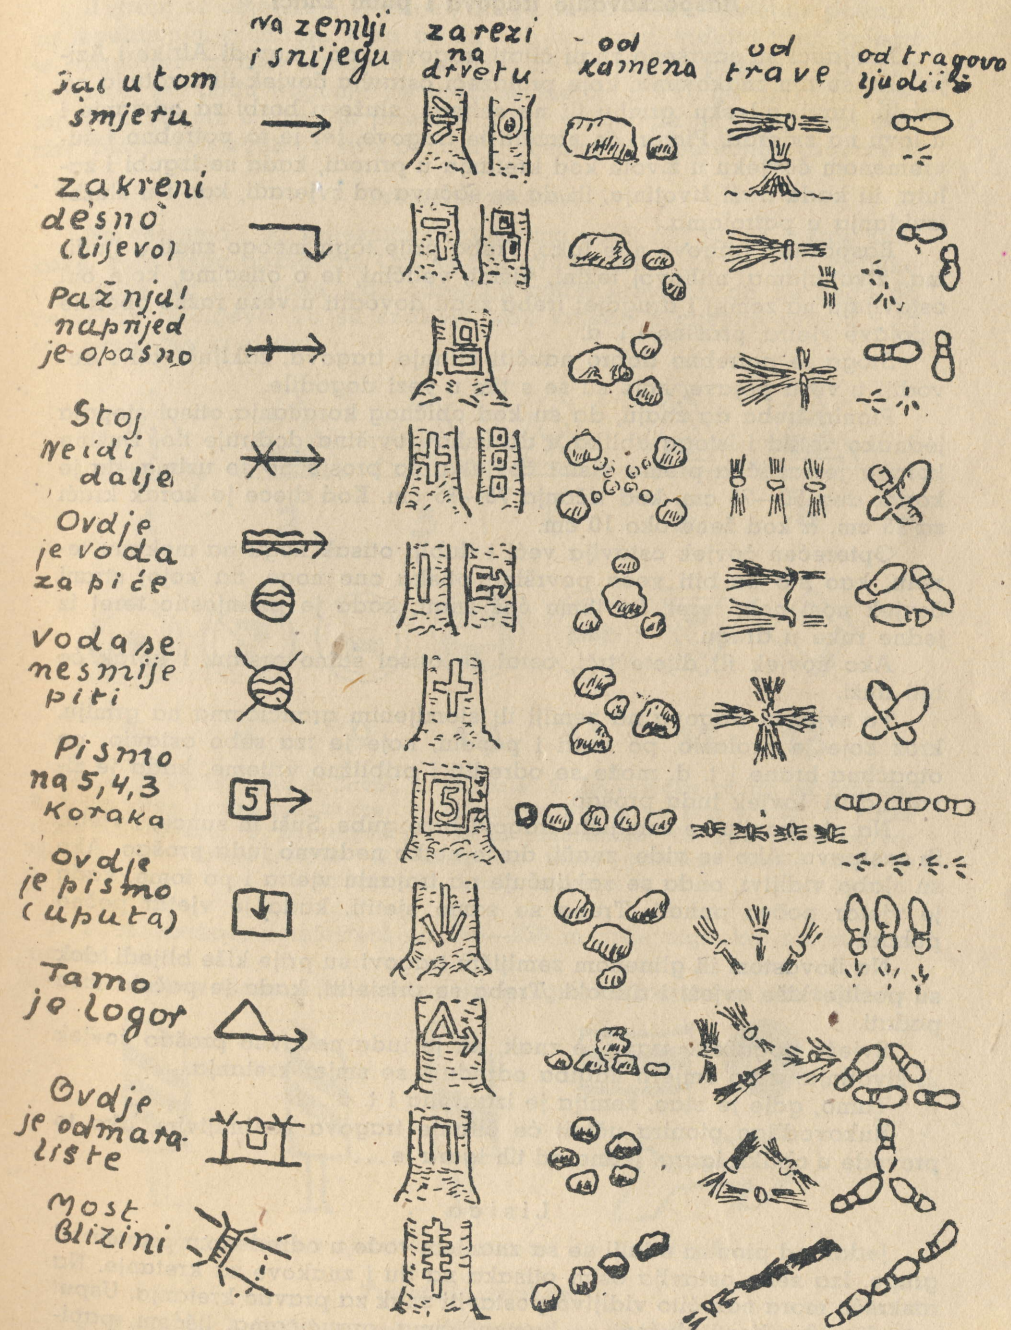 Na zemlji
i snijegu
zarezi
na
drvetu
od
kamena
od
trave
od tragova
ljudi i
u tom
smjeru
Zakreni
desno
(lijevo)
Pažnja!
naprijed
je opasno
Stoj
Neidi
dalje
Ovdje
je voda
za piće
Voda se
nesmije
piti
Pismo
na 5,4,3
Koraka
5
5
Ovdje
je pismo
(uputa)
Tamo
je logor
Ovdje
je odmara-
lište
Most
Blizini